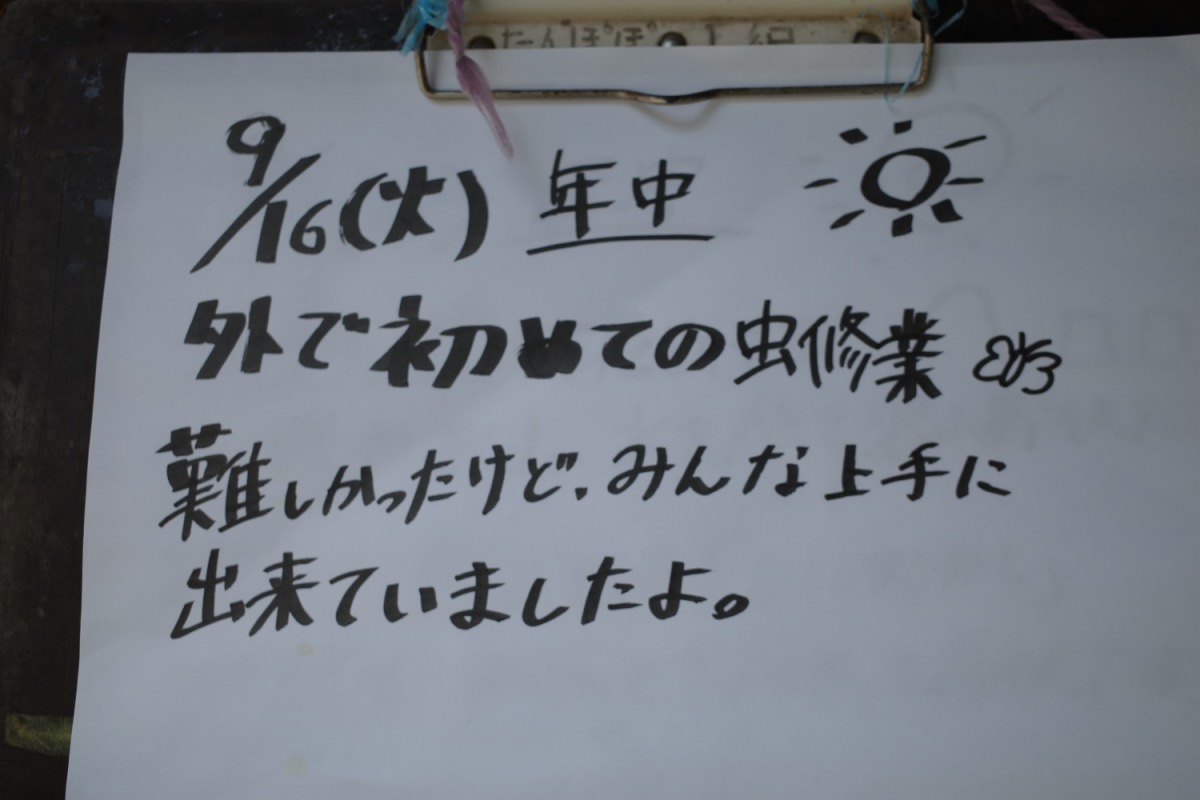 たんぽぽ 1組
9/16(火) 年中
外で初めての虫修業
難しかったけど、みんな上手に
出来ていましたよ。